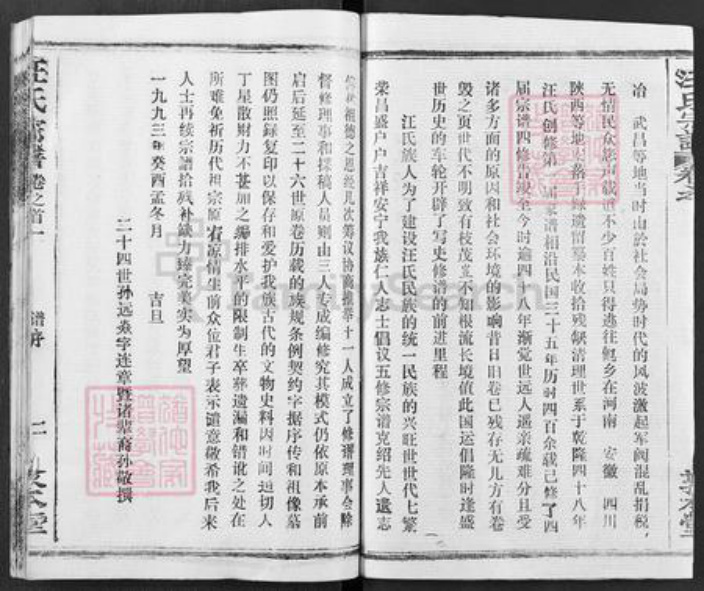 汪氏宗譜
卷之
冶 武昌等地当时由於社会局势时代的风波激起军阀混乱捐税,
无情民众怨声载道不少百姓只得逃往他乡在河南 安徽 四川
陕西等地由落手録遗留墓本收拾残缺清理世系于乾隆四十八年
汪氏创修第一届家谱相沿民国三十五年历时四百余载已修了四
届宗谱四修告竣至今时逾四十八年渐觉世远人遥亲疏难分且受
诸多方面的原因和社会环境的影响昔日旧卷已残存无几方有卷
毁之页世代不明致有枝茂岂不知根流长境值此国运倡隆时逢盛
世历史的车轮开辟了写史修谱的前进里程
汪氏族人为了建设汪氏民族的统一民族的兴旺世世代七繁
荣昌盛户户吉祥安宁我族仁人志士倡议五修宗谱克绍先人遗志
祖德之恩经几次筹议协商推举十一人成立了修谱理事会除
督修理事和採稿人员则由三人专成编修究其模式仍依原本承前
启后延至二十六世原卷历载的族规条例契约字据序传和祖像墓
图仍照録复印以保存和爱护我族古代的文物史料因时间迫切人
丁星散财力不甚加之编排水平的限制生卒葬遗漏和错讹之处在
所难免祈历代祖宗原宥谅情生前众位君子表示谴意敬希我后来
人士再续宗谱拾残补缺力臻完美实为厚望
一九九三年癸酉孟冬月 吉旦
二十四世孙远焱字连章暨诸辈裔孙敬撰
汪氏宗譜
卷之首一
谱序
FamilySearch